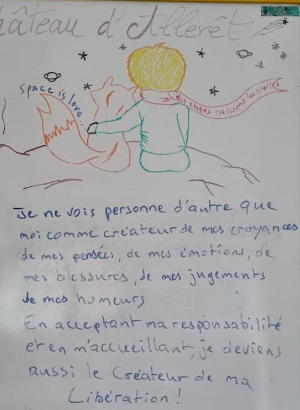 château d'Allerêt
space is love...
du chaos naissent les étoiles
Je ne vois personne d'autre que
moi comme créateur de mes croyances
de mes pensées, de mes émotions, de
mes blessures, de mes jugements
de mes humeurs
En acceptant ma responsabilité
et en m'accueillant, je deviens
aussi le Créateur de ma
Libération !